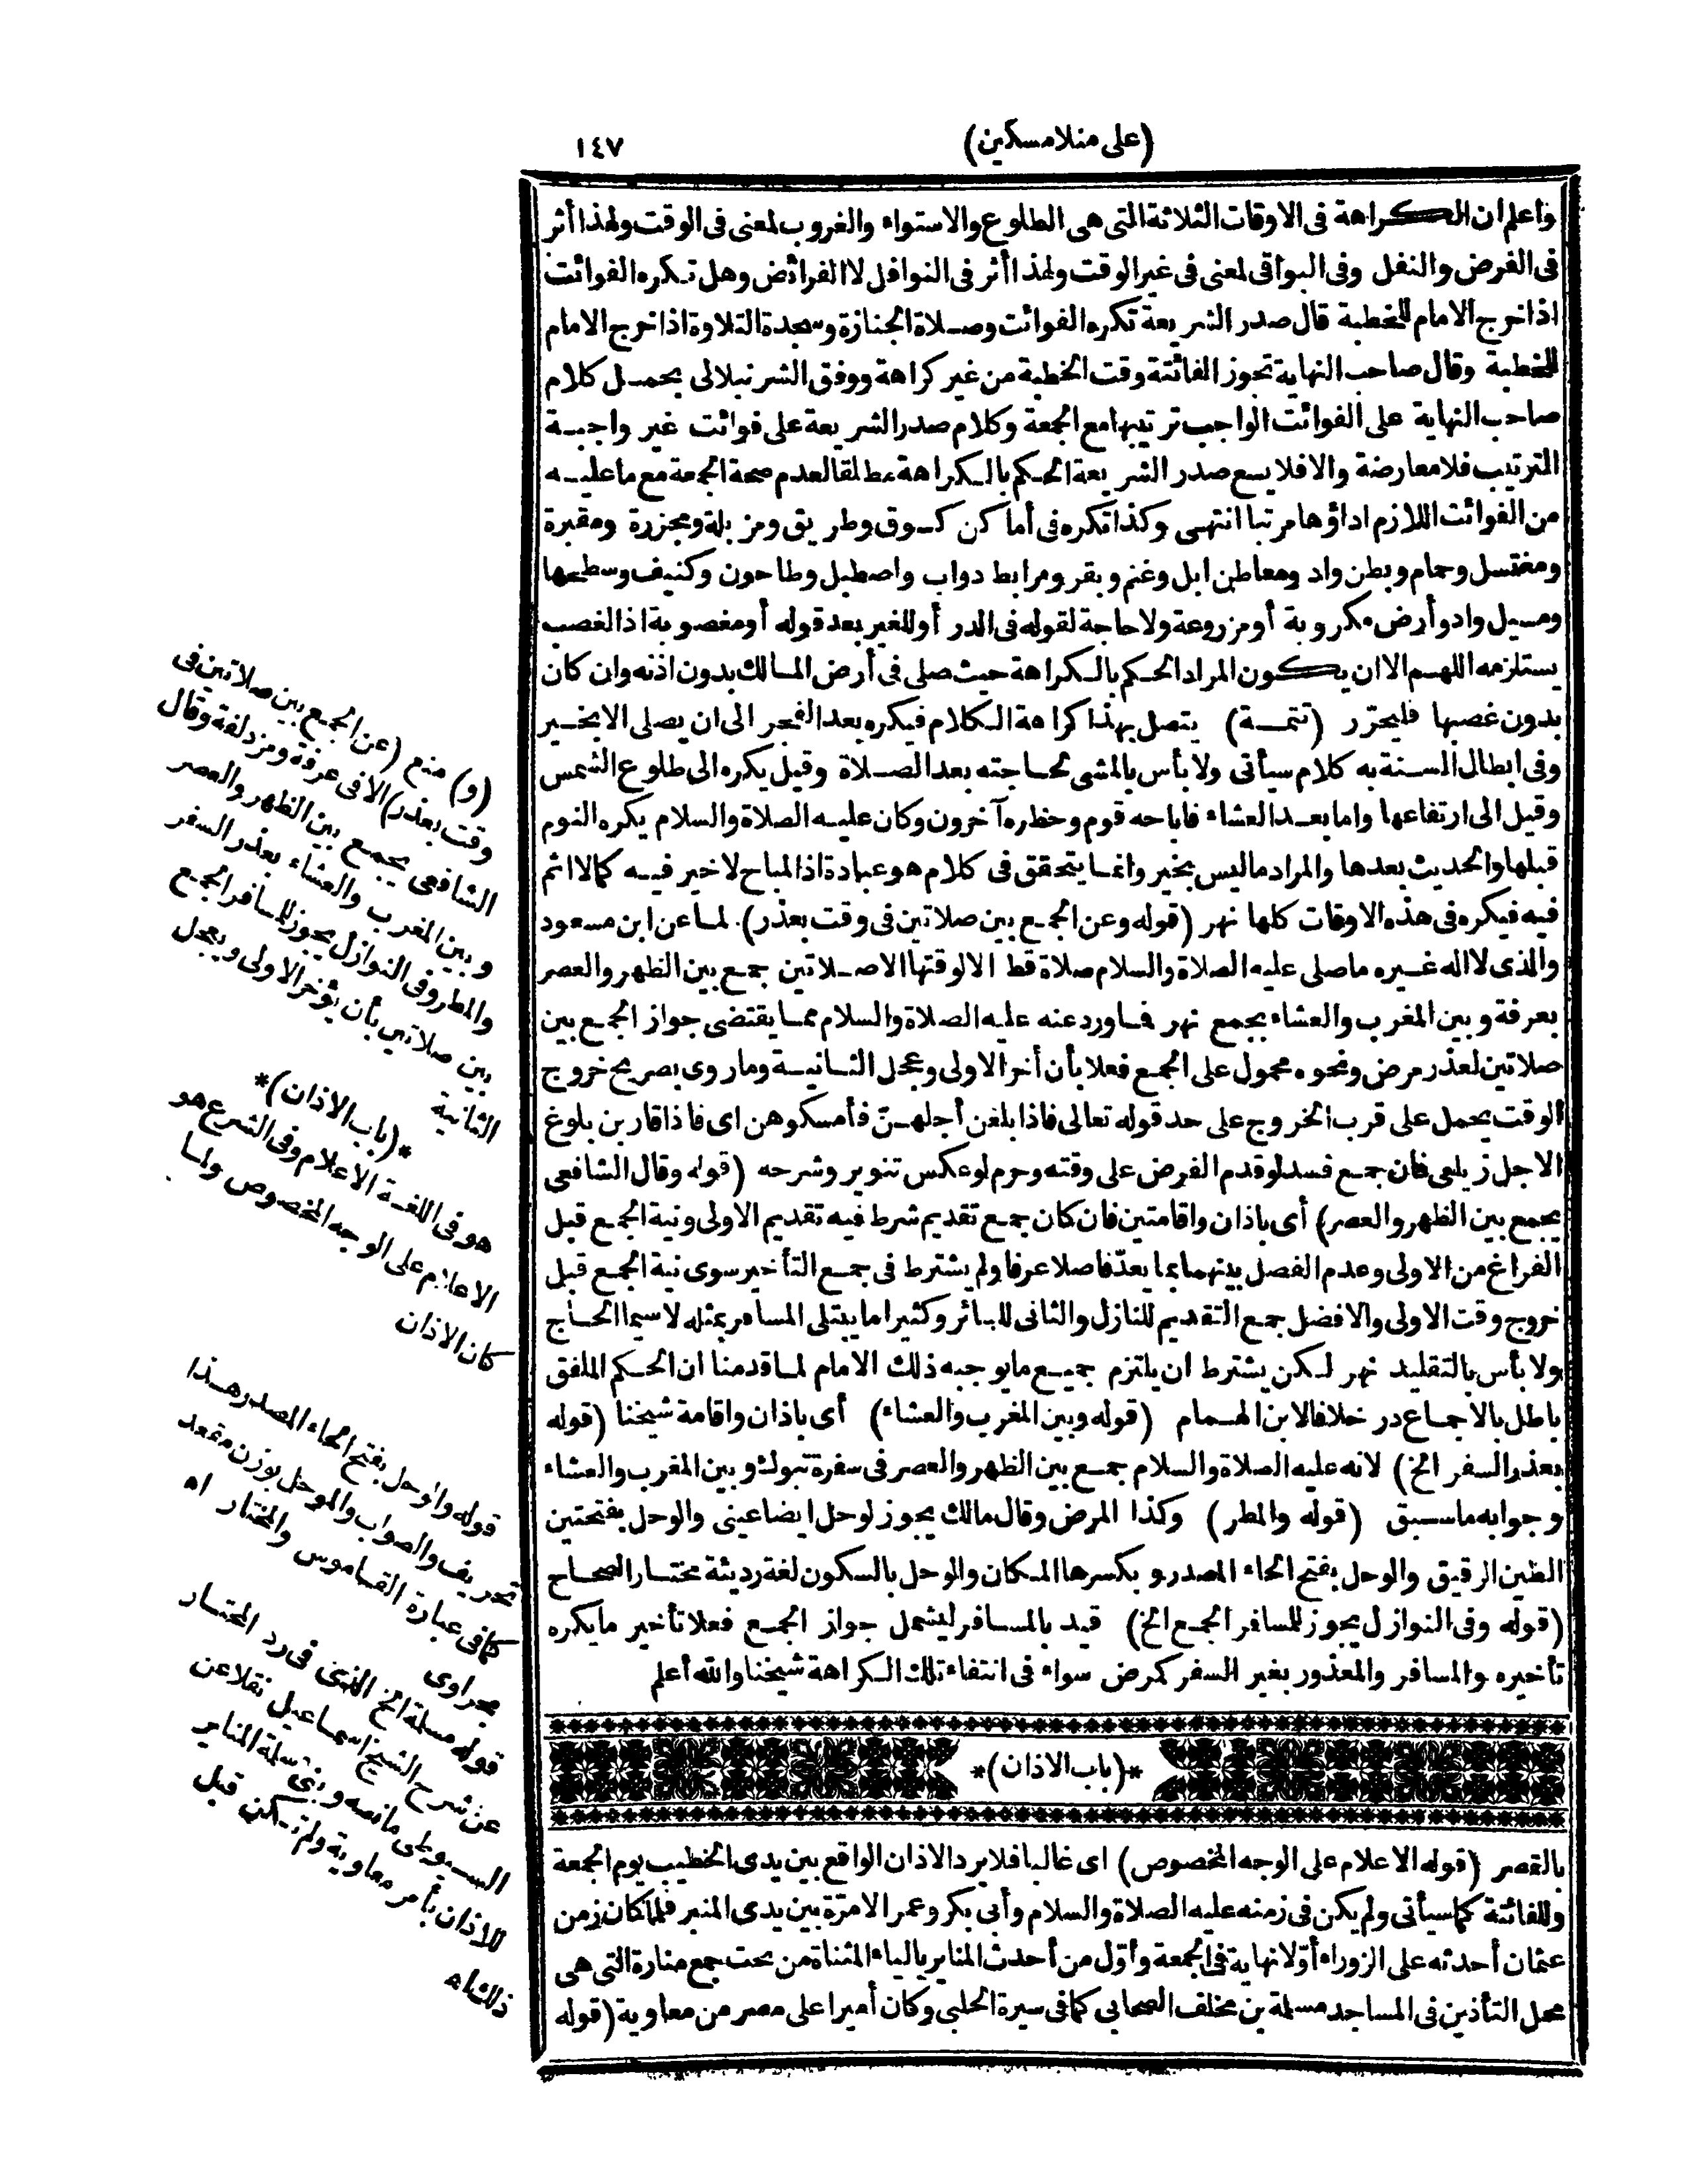 (على منلا مسكين)
١٤٧
واعلم ان الكراهة فى الاوقات الثلاثة التى هى الطلوع والاستواء والغروب لمعنى فى الوقت ولهذا أثر
فى الفرض والنفل وفى البواقى لمعنى فى غير الوقت ولهذا أثر فى النوافل لا الفرائض وهل تكره الفوائت
اذا خرج الامام للخطبة قال صدر الشريعة تكره الفوائت وصلاة الجنازة وسجدة التلاوة اذا خرج الامام
للخطبة وقال صاحب النهاية تجوز الفائتة وقت الخطبة من غير كراهة ووفق الشرنبلالى بحمل كلام
صاحب النهاية على الفوائت الواجب ترتيبها مع الجمعة وكلام صدر الشريعة على فوائت غير واجبة
الترتيب فلا معارضة والا فلا يسع صدر الشريعة الحكم بالكراهة مطلقا لعدم صحة الجمعة مع ما عليه
من الفوائت اللازم اداؤها مرتبا انتهى وكذا تكره فى أماكن كسوق وطريق ومزبلة ومجزرة ومقبرة
ومغتسل وحمام وبطن واد ومعاطن ابل وغنم وبقر ومرابط دواب واصطبل وطاحون وكنيف وسطحها
ومسيل واد وأرض مكروبة أو مزروعة ولا حاجة لقوله فى الدر أو للغير بعد قوله أو مغصوبة اذ الغصب
يستلزمه اللهم الا ان يكون المراد الحكم بالكراهة حيث صلى فى أرض المالك بدون اذنه وان كان
بدون غصبها فليحرّر (تتمة) يتصل بهذا كراهة الكلام فيكره بعد الفجر الى ان يصلى الا بخير
وفى ابطال السنة به كلام سيأتى ولا بأس بالمشى لحاجته بعد الصلاة وقيل يكره الى طلوع الشمس
وقيل الى ارتفاعها واما بعد العشاء فاباحه قوم وحظره آخرون وكان عليه الصلاة والسلام يكره النوم
قبلها والحديث بعدها والمراد ما ليس بخير وانما يتحقق فى كلام هو عبادة اذ المباح لا خير فيه كما لا اثم
فيه فيكره فى هذه الاوقات كلها نهر (قوله وعن الجمع بين صلاتين فى وقت بعذر) لما عن ابن مسعود
والذى لا اله غيره ما صلى عليه الصلاة والسلام صلاة قط الا لوقتها الا صلاتين جمع بين الظهر والعصر
بعرفة وبين المغرب والعشاء بجمع نهر فما ورد عنه عليه الصلاة والسلام مما يقتضى جواز الجمع بين
صلاتين لعذر مرض ونحوه محمول على الجمع فعلا بأن أخر الاولى وعجل الثانية وما روى بصريح خروج
الوقت يحمل على قرب الخروج على حد قوله تعالى فاذا بلغن أجلهنّ فأمسكوهن اى فاذا قاربن بلوغ
الاجل زيلعى فان جمع فسد لو قدم الفرض على وقته وحرم لو عكس تنوير وشرحه (قوله وقال الشافعى
يجمع بين الظهر والعصر) أى باذان واقامتين فان كان جمع تقديم شرط فيه تقديم الاولى ونية الجمع قبل
الفراغ من الاولى وعدم الفصل بينهما بما يعدّ فاصلا عرفا ولم يشترط فى جمع التأخير سوى نية الجمع قبل
خروج وقت الاولى والافضل جمع التقديم للنازل والثانى للسائر وكثيرا ما يبتلى المسافر بمثله لا سيما الحاج
ولا بأس بالتقليد نهر لكن يشترط ان يلتزم جميع ما يوجبه ذلك الامام لما قدمنا ان الحكم الملفق
باطل بالاجماع در خلافا لابن الهمام (قوله وبين المغرب والعشاء) أى باذان واقامة شيخنا (قوله
بعذر السفر الخ) لانه عليه الصلاة والسلام جمع بين الظهر والعصر فى سفرة تبوك وبين المغرب والعشاء
وجوابه ما سبق (قوله والمطر) وكذا المرض وقال مالك يجوز لوحل ايضا عينى والوحل بفتحتين
الطين الرقيق والوحل بفتح الحاء المصدر وبكسرها المكان والوحل بالسكون لغة رديئة مختار الصحاح
(قوله وفى النوازل يجوز للمسافر الجمع الخ) قيد بالمسافر ليشمل جواز الجمع فعلا تأخير ما يكره
تأخيره والمسافر والمعذور بغير السفر كمرض سواء فى انتفاء تلك الكراهة شيخنا والله أعلم
*(باب الاذان)*
بالقصر (قوله الاعلام على الوجه المخصوص) اى غالبا فلا يرد الاذان الواقع بين يدى الخطيب يوم الجمعة
وللفائتة كما سيأتى ولم يكن فى زمنه عليه الصلاة والسلام وأبى بكر وعمر الا مرّة بين يدى المنبر فلما كان زمن
عثمان أحدثه على الزوراء أوّلا نهاية فى الجمعة وأوّل من أحدث المناير بالياء المثناة من تحت جمع منارة التى هى
محل التأذين فى المساجد مسلمة بن مخلف الصحابى كما فى سيرة الحلبى وكان أميرا على مصر من معاوية (قوله
(و) منع (عن الجمع بين صلاتين فى
وقت بعذر) الا فى عرفة ومزدلفة وقال
الشافعى يجمع بين الظهر والعصر
وبين المغرب والعشاء بعذر السفر
والمطر وفى النوازل يجوز للمسافر الجمع
بين صلاتين بأن يؤخر الاولى ويعجل
الثانية
*(باب الاذان)*
هو فى اللغة الاعلام وفى الشرع هو
الاعلام على الوجه المخصوص ولما
كان الاذان
قوله والوحل بفتح الحاء المصدر هذا
تحريف والصواب والموحل بوزن مقعد
كما فى عبارة القاموس والمختار اه
بحراوى
قوله مسلمة الخ الذى فى رد المحتار
عن شرح الشيخ اسماعيل نقلا عن
السيوطى ما نصه وبنى مسلمة المناير
للاذان بأمر معاوية ولم تكن قبل
ذلك اه